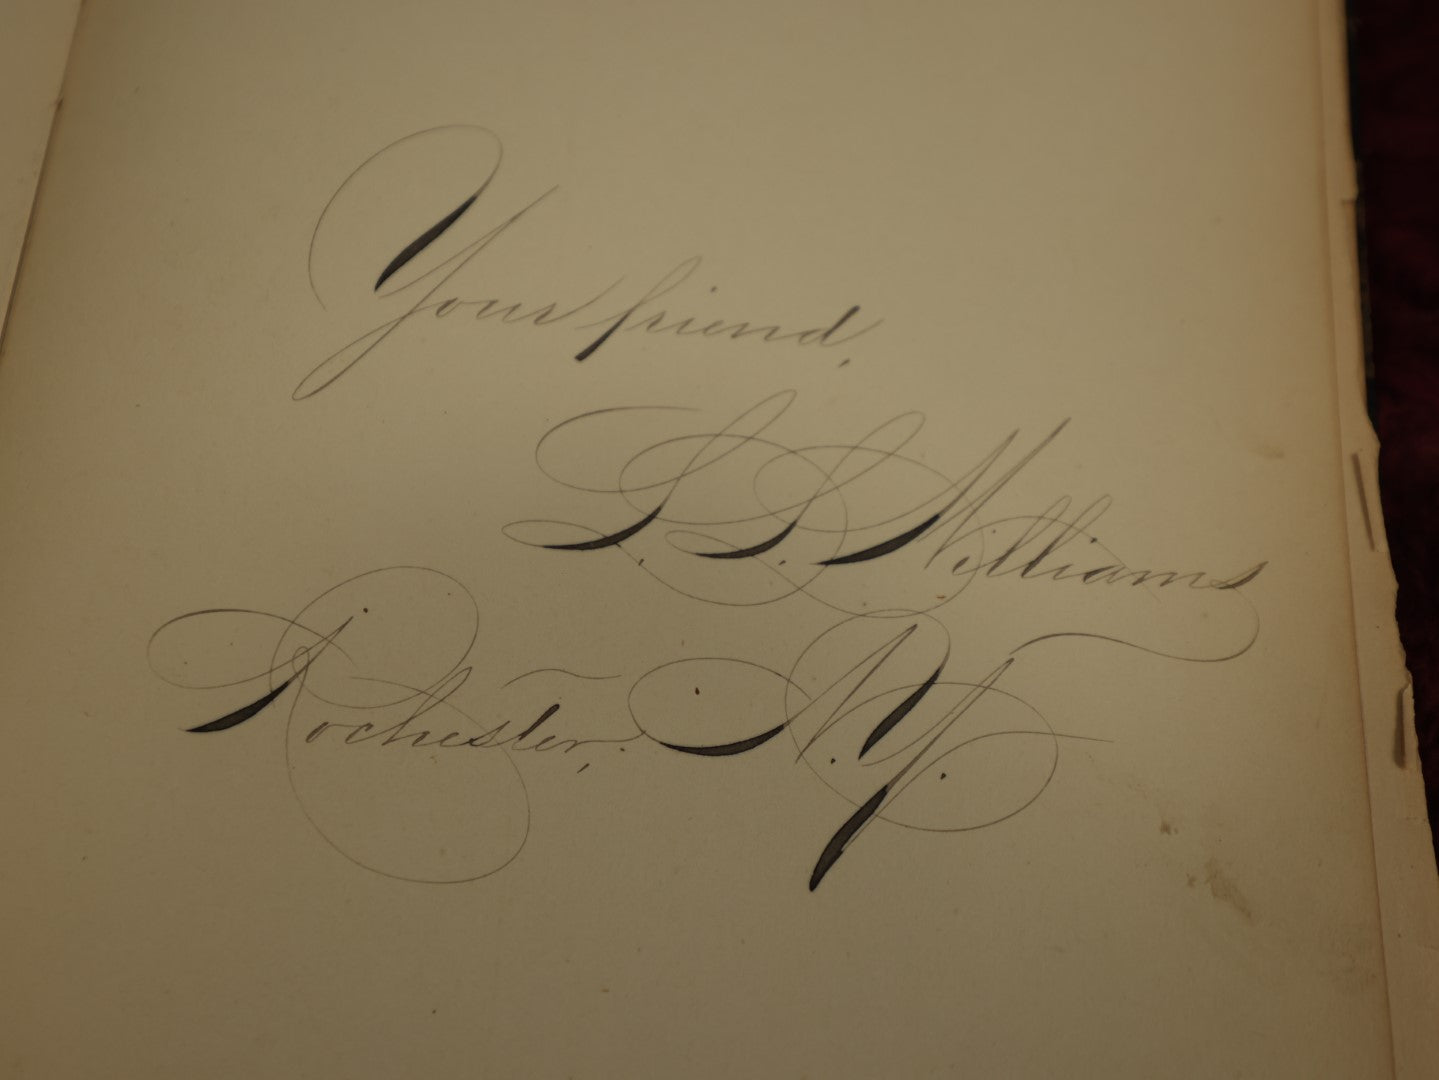 Your friend,
L. L. Williams
Rochester, N.Y.